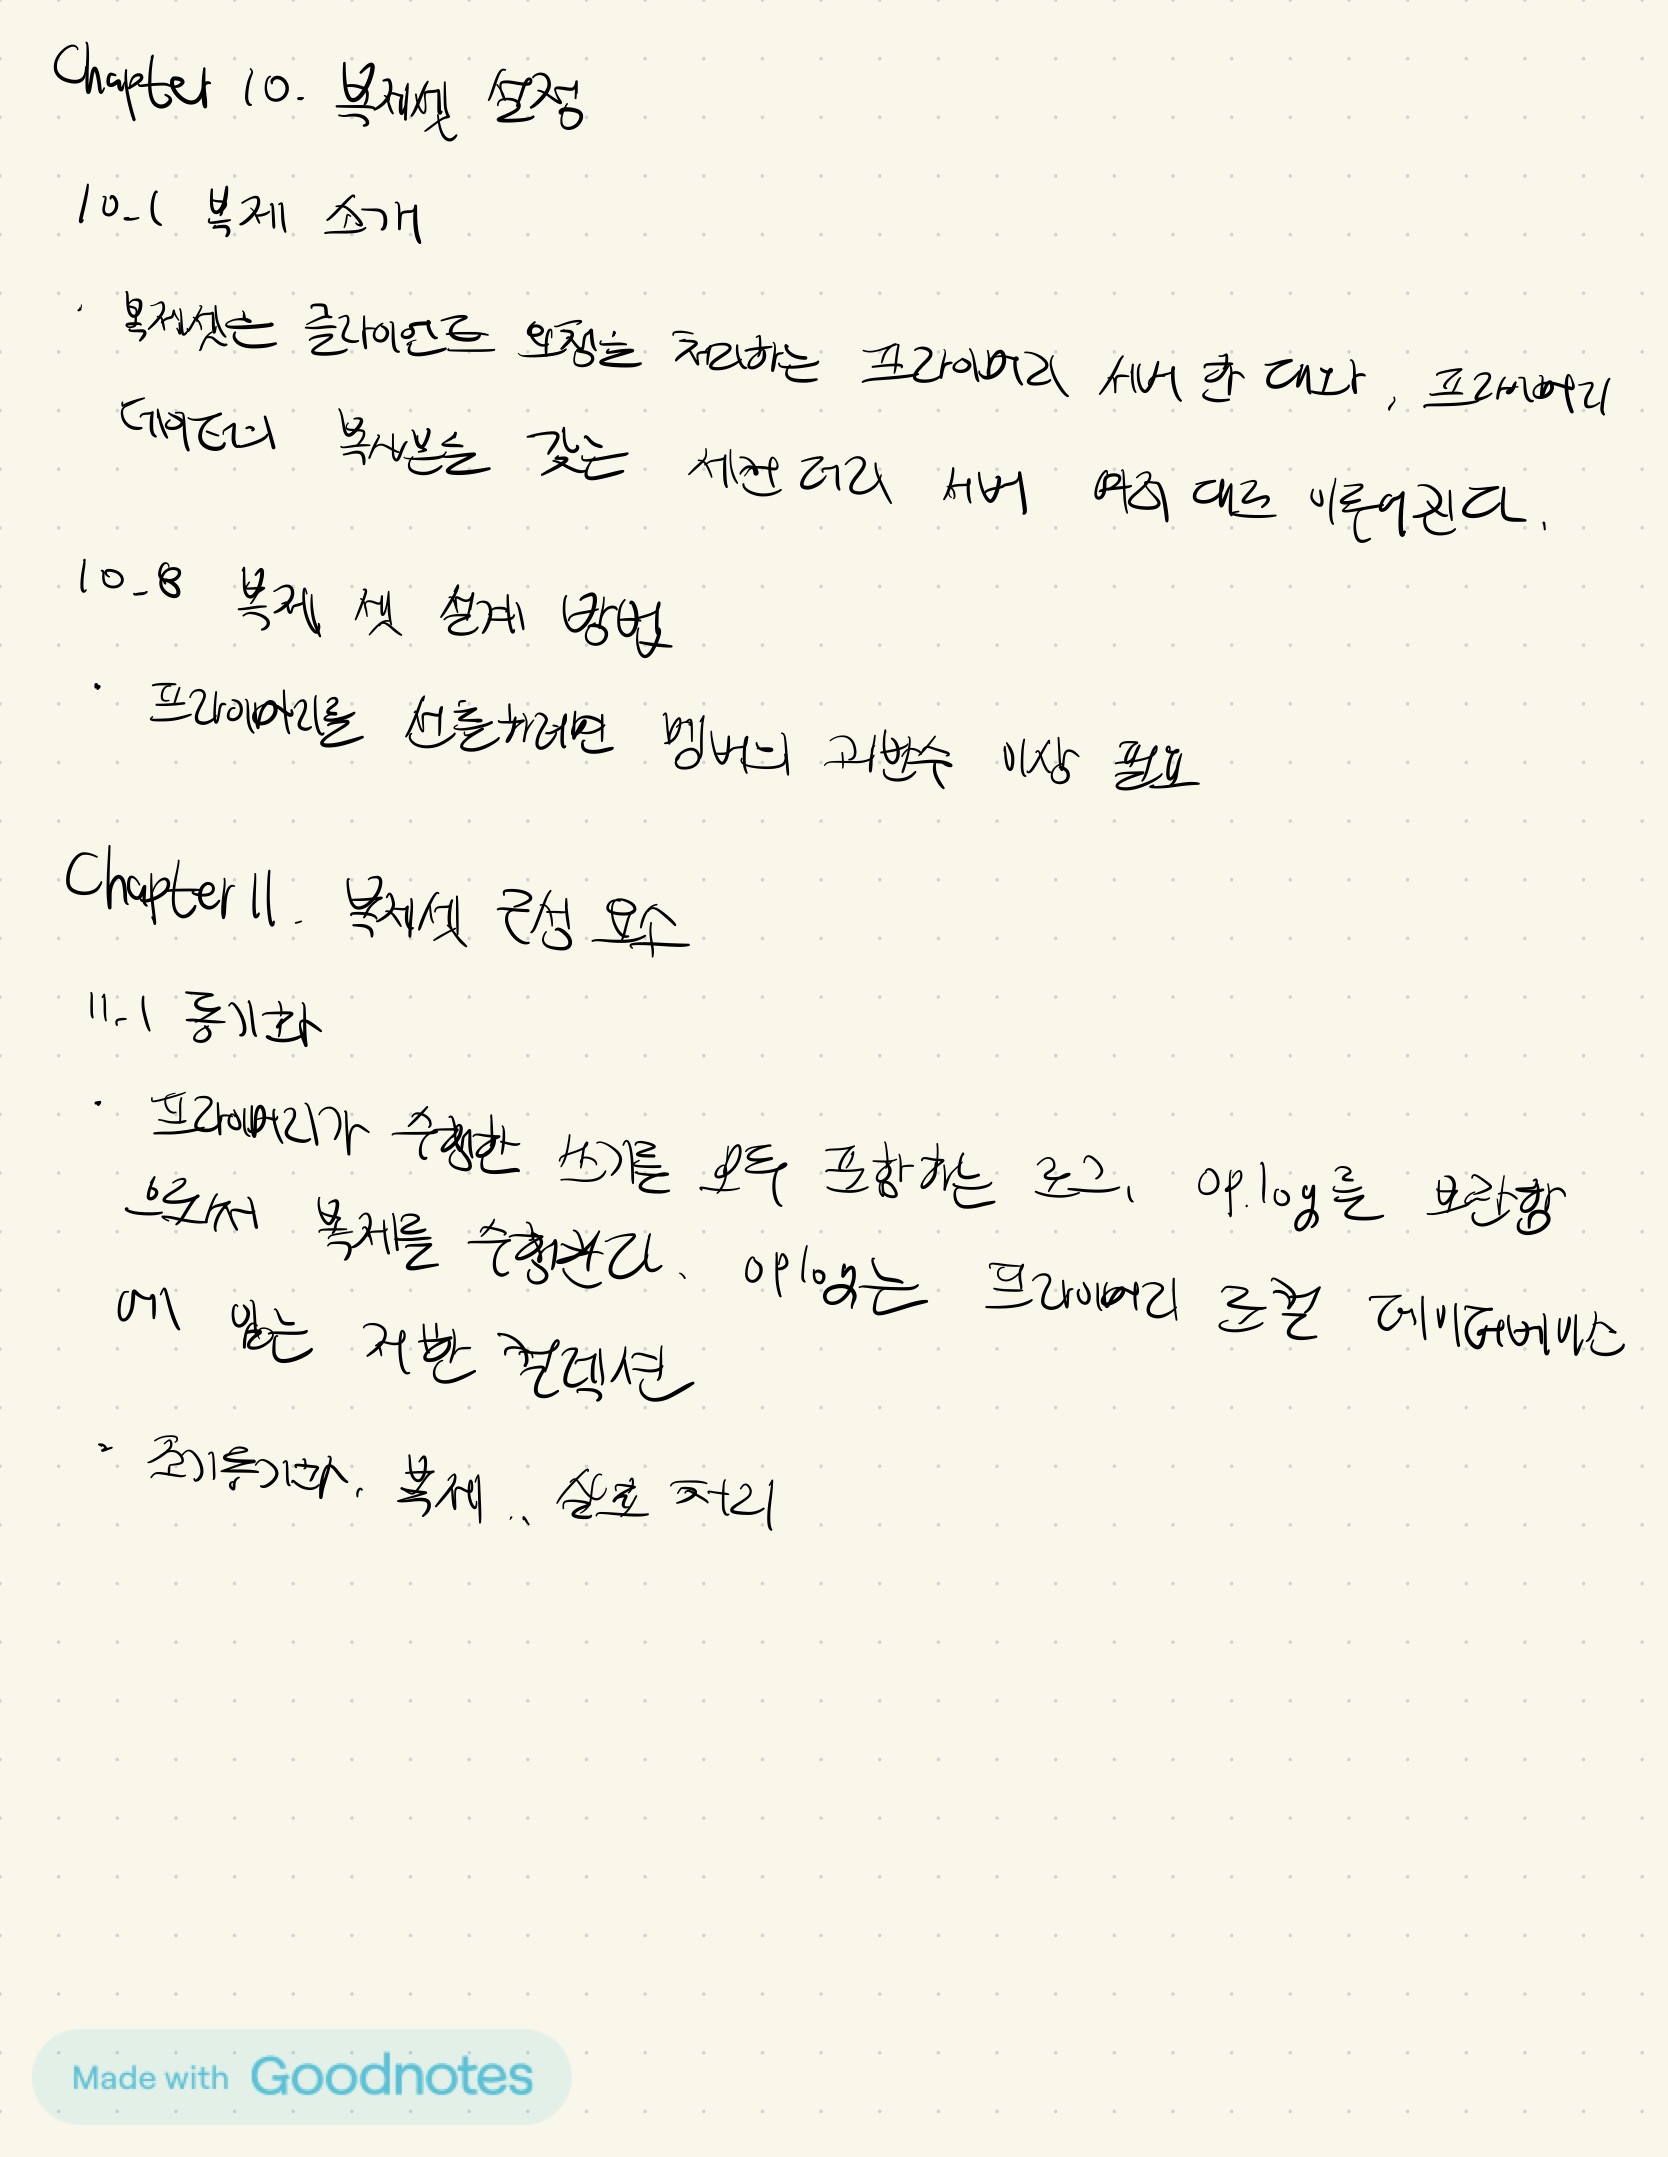 Chapter 10. 복제셋 설정
10-1 복제 소개
· 복제셋은 클라이언트 요청을 처리하는 프라이머리 서버 한 대와, 프라이머리
데이터의 복사본을 갖는 세컨더리 서버 여러 대로 이루어진다.
10-8 복제 셋 설계 방법
· 프라이머리를 선출하려면 멤버의 과반수 이상 필요
Chapter 11. 복제셋 구성 요소
11-1 동기화
· 프라이머리가 수행한 쓰기를 모두 포함하는 로그, op.log를 보관함
으로써 복제를 수행한다. oplog는 프라이머리 로컬 데이터베이스
에 있는 제한 컬렉션
· 초기동기화, 복제.. 실효 처리
Made with Goodnotes